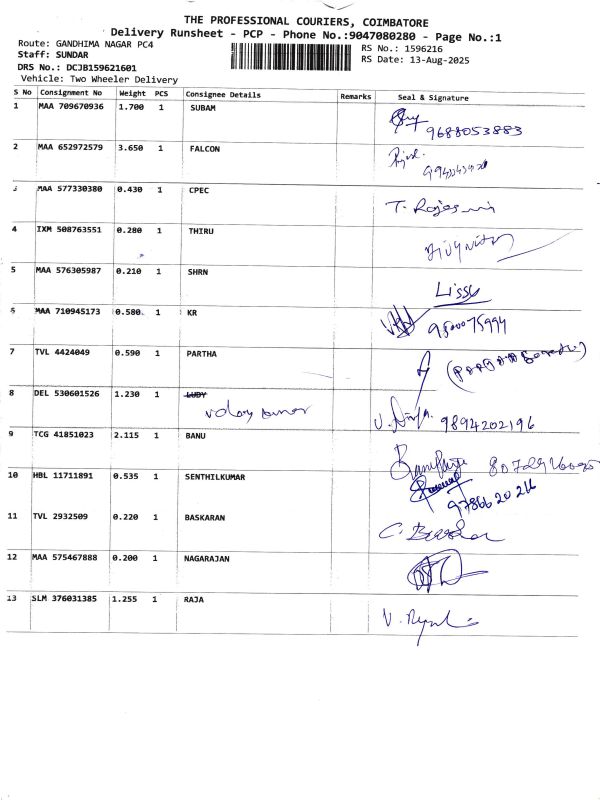 THE PROFESSIONAL COURIERS, COIMBATORE
Delivery Runsheet - PCP - Phone No.:9047080280 - Page No.:1
Route: GANDHIMA NAGAR PC4
RS No.: 1596216
Staff: SUNDAR
RS Date: 13-Aug-2025
DRS No.: DCJB159621601
Vehicle: Two Wheeler Delivery
S No Consignment No Weight PCS Consignee Details Remarks Seal & Signature
1 MAA 709670936 1.700 1 SUBAM
9688053883
2 MAA 652972579 3.650 1 FALCON
3 MAA 577330380 0.430 1 CPEC
4 IXM 508763551 0.280 1 THIRU
5 MAA 576305987 0.210 1 SHRN
Lissy
6 MAA 710945173 0.580 1 KR
9500075994
7 TVL 4424049 0.590 1 PARTHA
8 DEL 530601526 1.230 1 LUDY
9894202196
9 TCG 41851023 2.115 1 BANU
10 HBL 11711891 0.535 1 SENTHILKUMAR
9786620216
11 TVL 2932509 0.220 1 BASKARAN
12 MAA 575467888 0.200 1 NAGARAJAN
13 SLM 376031385 1.255 1 RAJA